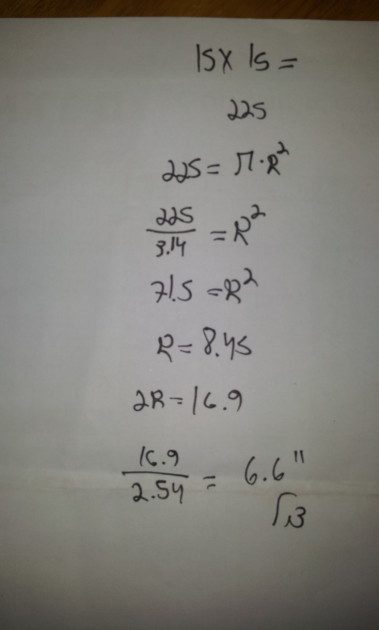 15 X 15 =
225
225 = π · R²
225
3.14
= R²
71.5 = R²
R = 8.45
2R = 16.9
16.9
2.54
= 6.6"